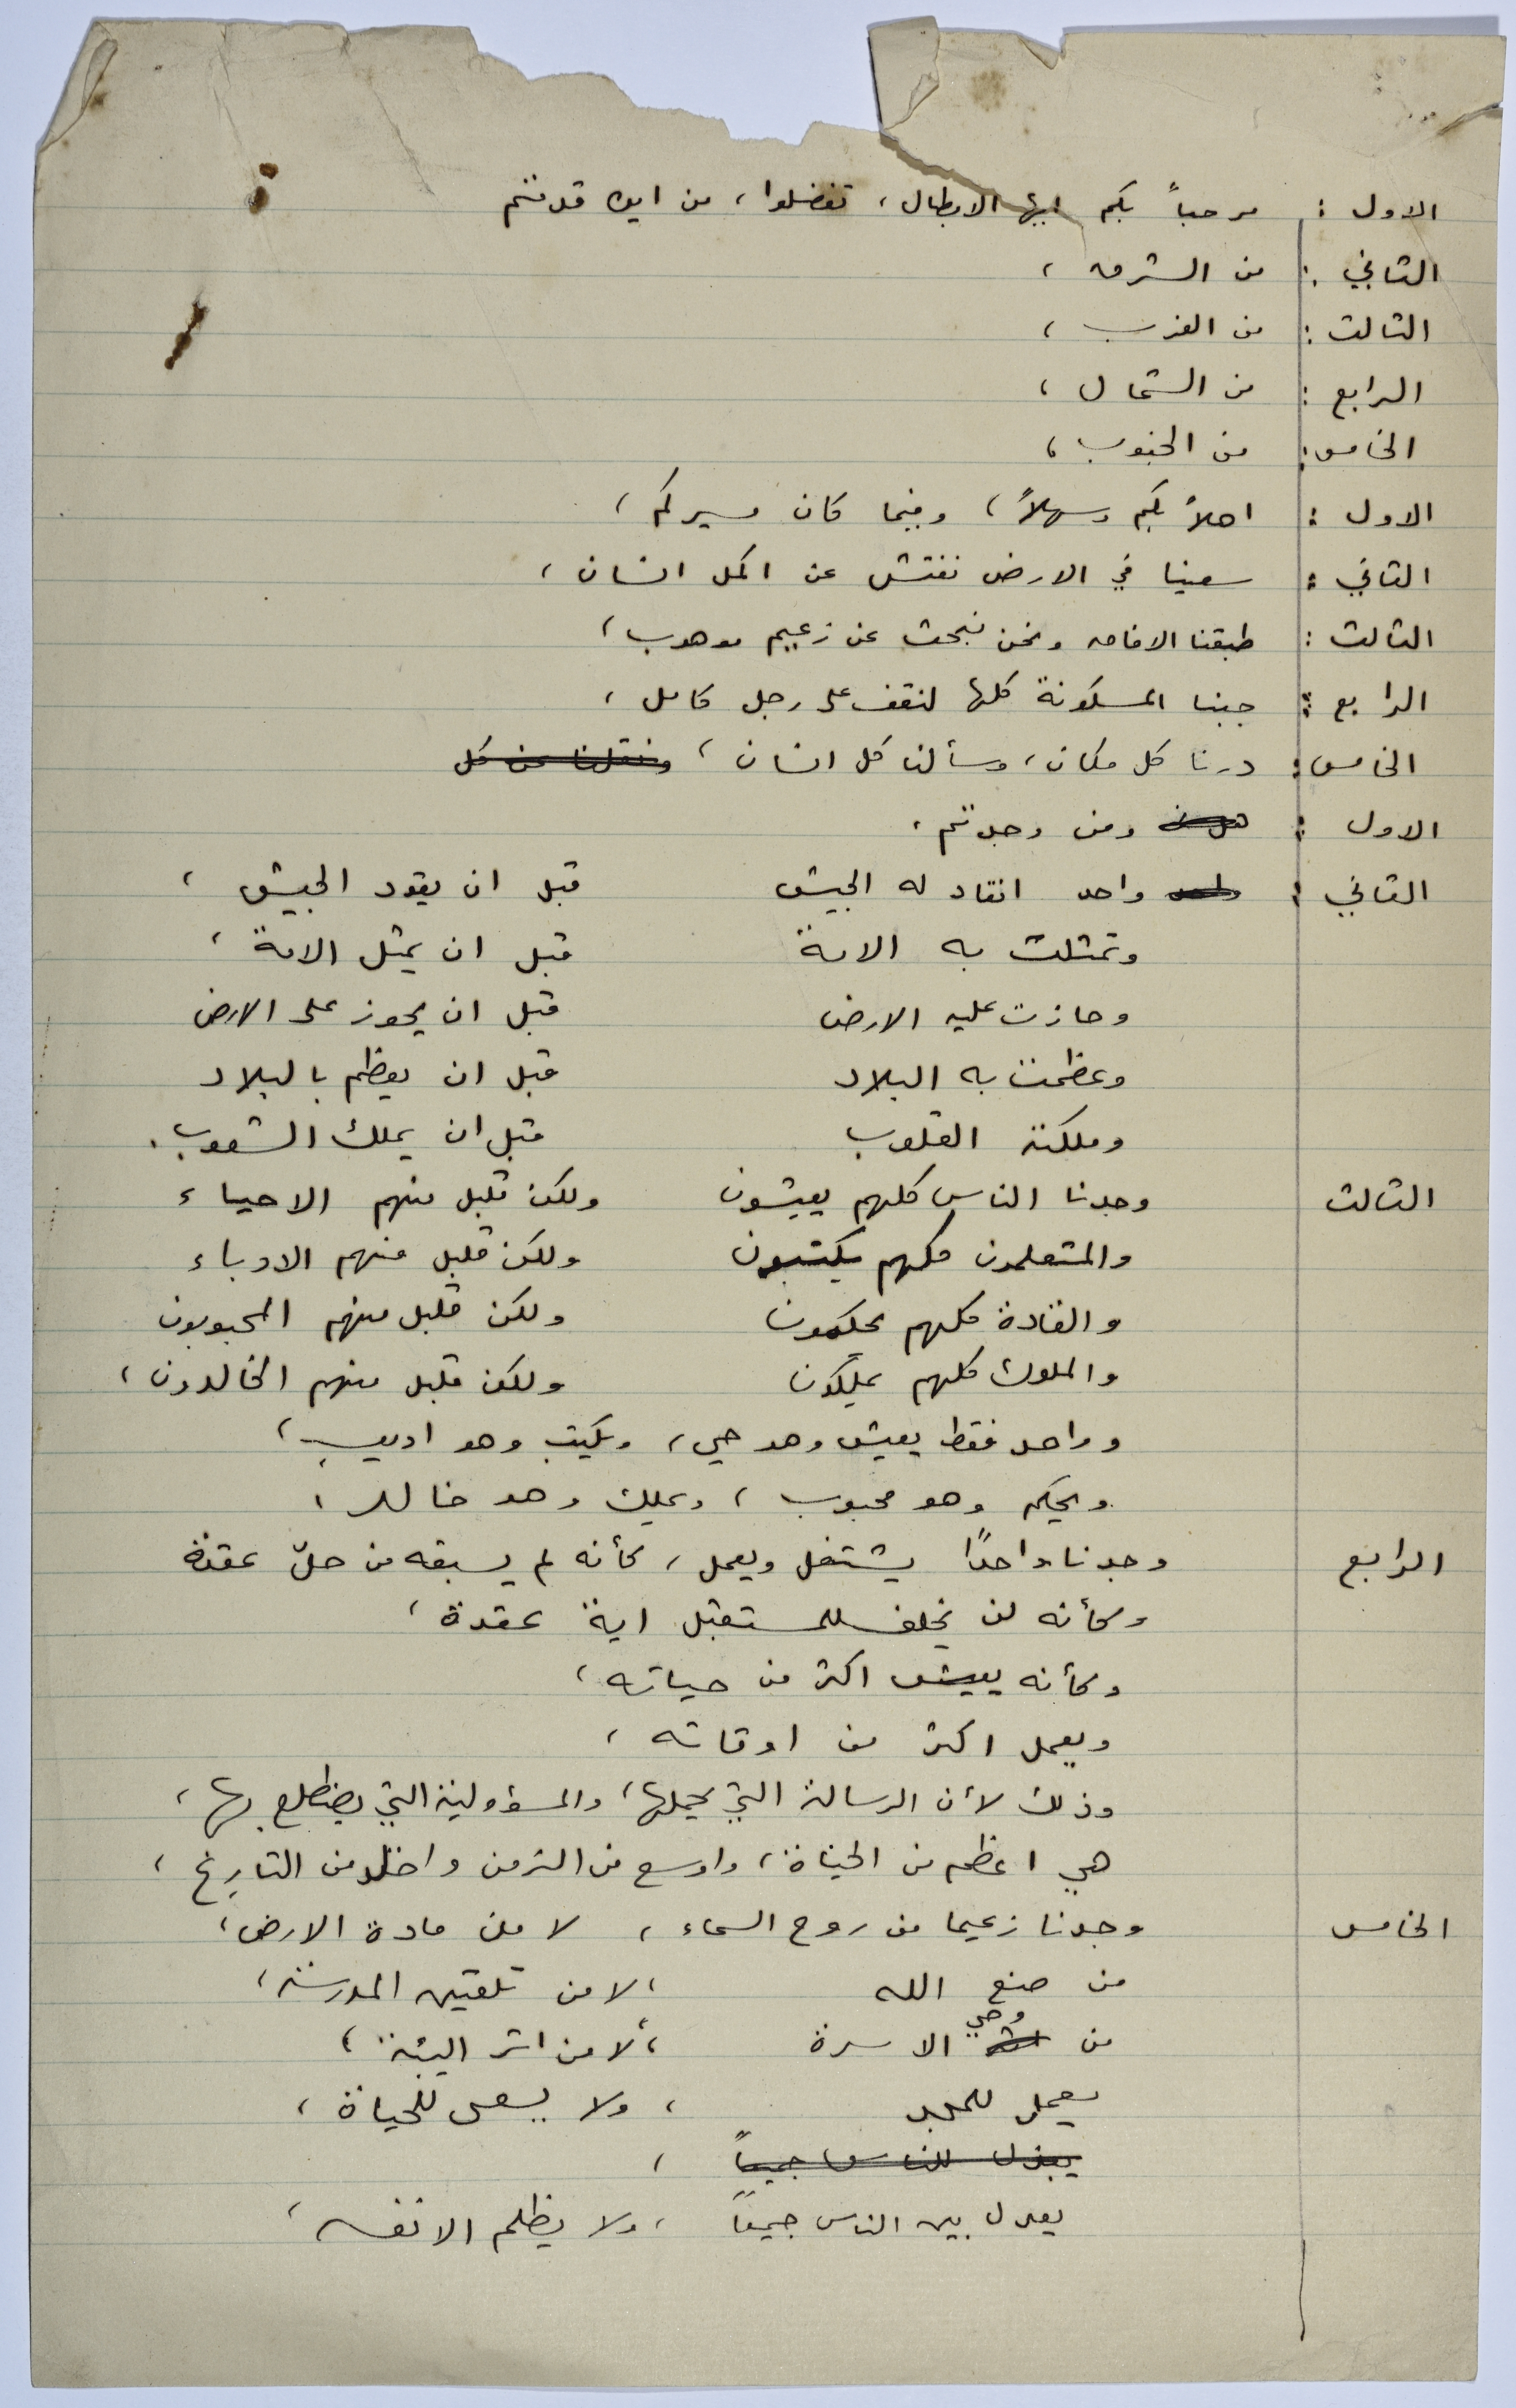 الاول : مرحباً بكم ايها الابطال ، تفضلوا ، من اين قدمتم
الثاني : من الشرق ،
الثالث : من الغرب ،
الرابع : من الشمال ،
الخامس : من الجنوب ،
الاول : اهلاً بكم وسهلاً ، وفيما كان مسيركم ،
الثاني : سعينا في الارض نفتش عن اكمل انسان ،
الثالث : طبقنا الافاق ونحن نبحث عن زعيم موهوب ،
الرابع : جبنا المسكونة كلها لنقف على رجل كامل ،
الخامس : درنا كل مكان ، وسألنا كل انسان ،
الاول : ومن وجدتم ،
الثاني : واحد انقاد له الجيش قبل ان يقود الجيش ،
وتمثلت به الامة قبل ان يمثل الامة ،
وحازت عليه الارض قبل ان يحوز على الارض
وعظمت به البلاد قبل ان يعظم بالبلاد
وملكته القلوب قبل ان يملك الشعوب .
الثالث وجدنا الناس كلهم يعيشون ولكن قليل منهم الاحياء
والمتعلمون كلهم يكتبون ولكن قليل منهم الادباء
والقادة كلهم يحكمون ولكن قليل منهم المحبوبون
والملوك كلهم يملكون ولكن قليل منهم الخالدون ،
وواحد فقط يعيش وهو حي ، ويكتب وهو اديب ،
ويحكم وهو محبوب ، ويملك وهو خالد ،
الرابع وجدنا واحدًا يشتغل ويعمل ، كأنه لم يسبقه من حلّ عقدة
وكأنه لن يخلف للمستقبل اية عقدة ،
وكأنه يعيش اكثر من حياته ،
ويعمل اكثر من اوقاته ،
وذلك لأن الرسالة التي يحملها ، والمسؤولية التي يضطلع بها ،
هي اعظم من الحياة ، واوسع من الزمن واخلد من التاريخ ،
الخامس وجدنا زعيما من روح السماء ، لا من مادة الارض ،
من صنع الله ، لا من تلقين المدرسة ،
من وحي الاسرة ، لا من اثر البيئة ،
يعمل للمجد ، ولا يسعى للحياة ،
يبذل للناس جميعاً ،
يعدل بين الناس جميعاً ، ولا يظلم الا نفسه ،